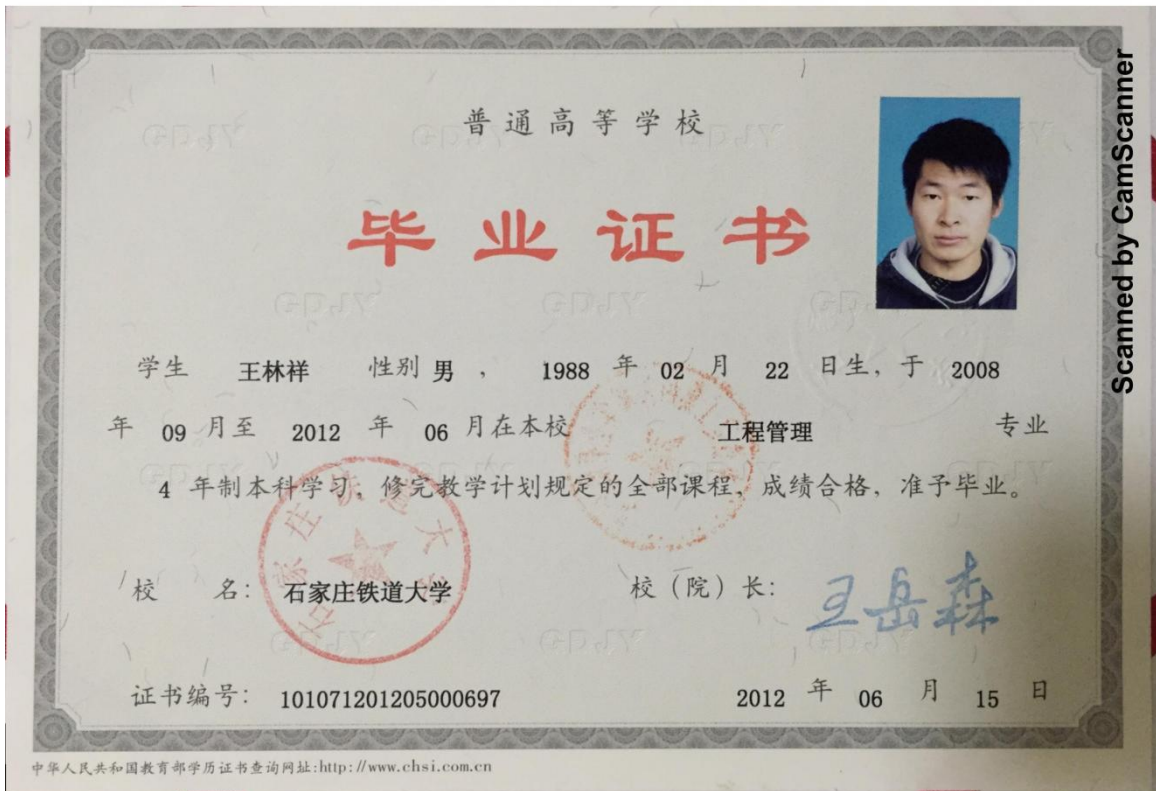 普通高等学校
毕业证书
学生 王林祥 性别 男 ， 1988 年 02 月 22 日生，于 2008
年 09 月至 2012 年 06 月在本校 工程管理 专业
4 年制本科学习，修完教学计划规定的全部课程，成绩合格，准予毕业。
校 名： 石家庄铁道大学 校（院）长： 王岳森
石家庄铁道大学
证书编号： 101071201205000697 2012 年 06 月 15 日
中华人民共和国教育部学历证书查询网址:http://www.chsi.com.cn
Scanned by CamScanner